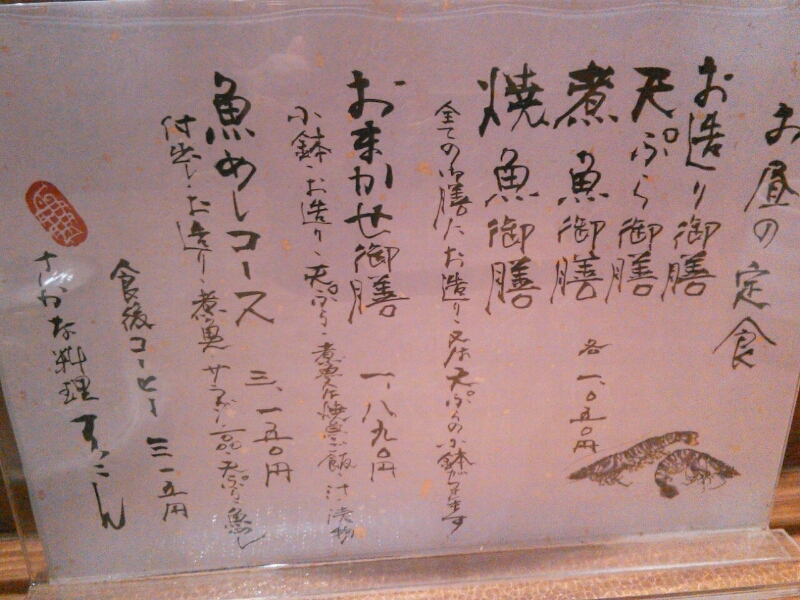 お昼の定食
お造り御膳
天ぷら御膳
煮魚御膳
焼魚御膳
各 一、〇五〇円
全ての御膳にお造り又は天ぷらの小鉢が付きます
おまかせ御膳 一、八九〇円
小鉢・お造り・天ぷら・煮魚又は焼魚・ご飯・汁・漬物
魚めしコース 三、一五〇円
付出し・お造り・煮魚・サラダ・天ぷら・魚めし
食後コーヒー 三一五円
さかな料理